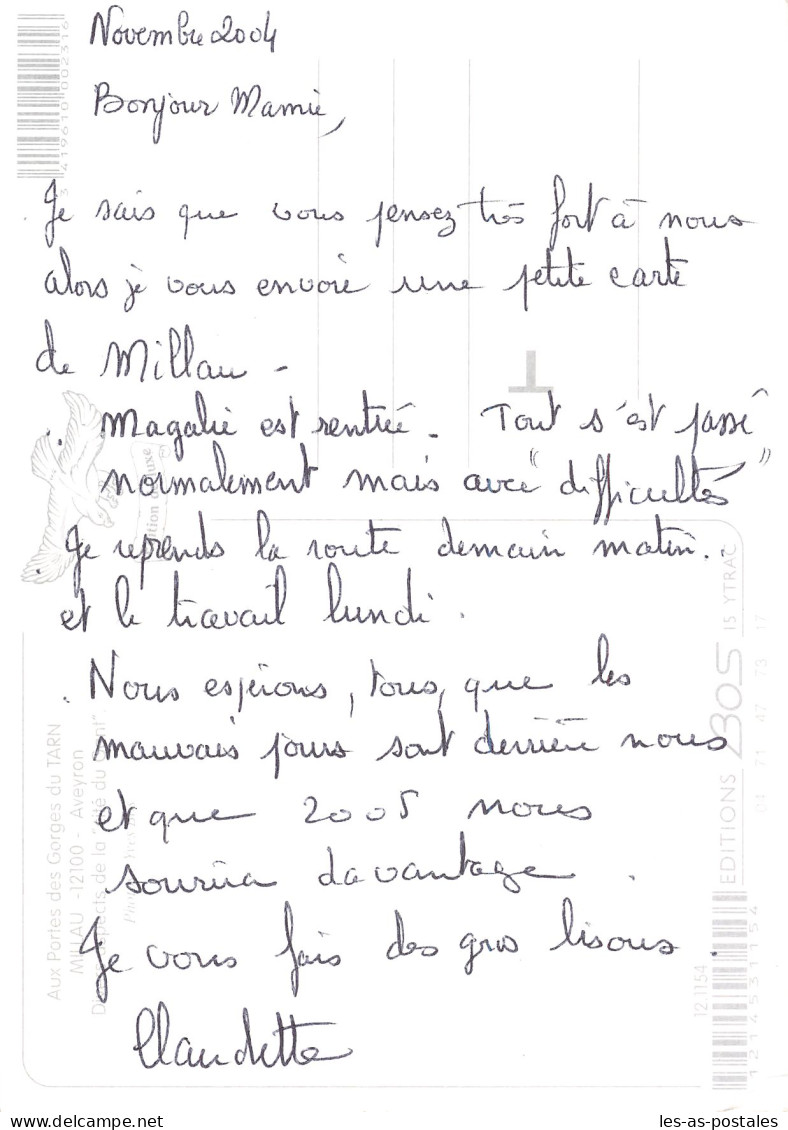 Novembre 2004
Bonjour Mamie,
Je sais que vous pensez très fort à nous
alors je vous envoie une petite carte
de Millau -
Magalie est rentrée. Tout s'est passé
normalement mais avec "difficultés"
Je reprends la route demain matin.
et le travail lundi.
Nous espérons, tous, que les
mauvais jours sont derrière nous
et que 2005 nous
sourira davantage.
Je vous fais des gros bisous.
Claudette
3 419610 002316
Aux Portes des Gorges du TARN
MILLAU -12100 - Aveyron
EDITIONS BOS
15 YTRAC
04 71 47 73 17
12.1154
1214531154
les-as-postales.com